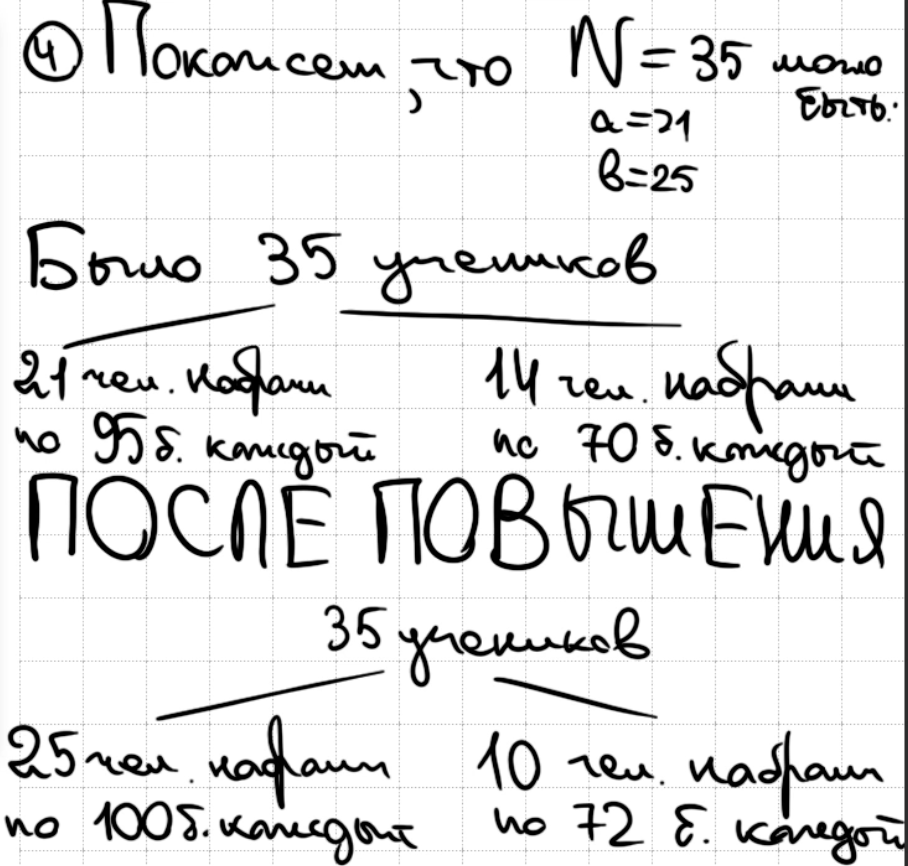 ④ Покажем, что N = 35 может быть:
a=21
b=25
Было 35 учеников
21 чел. набрали 14 чел. набрали
по 95 б. каждый по 70 б. каждый
ПОСЛЕ ПОВЫШЕНИЯ
35 учеников
25 чел. набрали 10 чел. набрали
по 100 б. каждый по 72 б. каждый